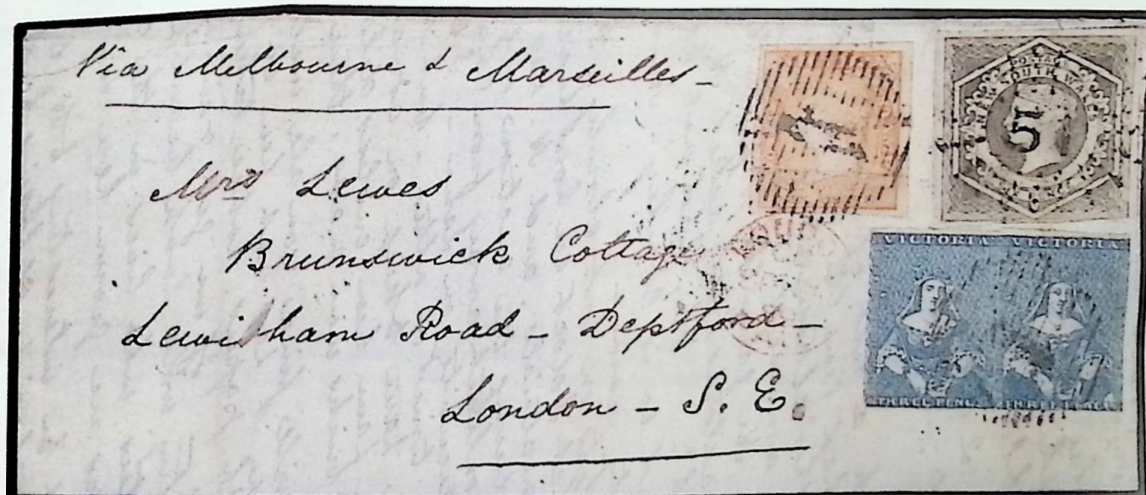 Via Melbourne & Marseilles -
Mrs Lewes
Brunswick Cottage
Lewisham Road - Deptford -
London - S. E.
POSTAGE
NEW SOUTH WALES
5
VICTORIA VICTORIA
THREE PENCE THREE PENCE